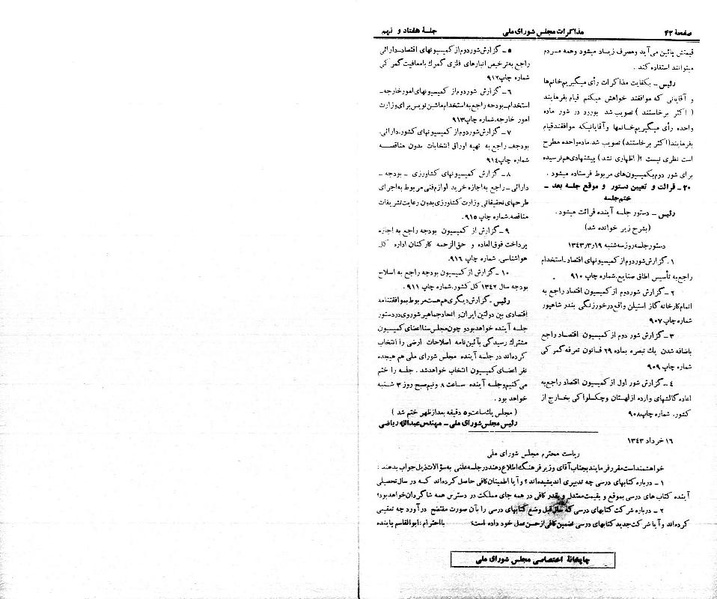 صفحهٔ ۴۳
مذاکرات مجلس شورای ملی
جلسهٔ هفتاد و نهم
قیمتش پائین می‌آید ومصرف زیاد میشود وهمه مردم
میتوانند استفاده کند.
رئیس ـ بکفایت مذاکرات رأی میگیریم‌خانم‌ها
و آقایانی که موافقند خواهش میکنم قیام بفرمایند
(اکثر برخاستند) تصویب شد. بورود در شور ماده
واحده رأی میگیریم‌خانمها وآقایانیکه موافقندقیام
بفرمایند(اکثر برخاستند) تصویب شد.ماده‌واحده مطرح
است نظری نیست ؟( اظهاری نشد) پیشنهادی‌هم‌نرسیده
برای شور دوم‌بکمیسیون‌های مربوط فرستاده میشود.
۲۰ـ قرائت و تعیین دستور و موقع جلسه بعد ـ
ختم‌جلسه
رئیس ـ دستور جلسه آینده قرائت میشود.
(بشرح زیر خوانده شد)
دستورجلسه‌روزسه‌شنبه ۱۳۴۳/۳/۱۹
۱ـگزارش‌شوردوم‌از کمیسیونهای اقتصاد.استخدام
راجع‌به‌تأسیس اطاق صنایع.شماره چاپ ۹۱۰
۲ـ گزارش شوردوم از کمیسیون اقتصاد راجع به
اتمام‌کارخانه‌گاز استیلن واقع درخورزنگی بندر شاهپور
شماره چاپ ۹۰۷
۳ـ گزارش شور دوم از کمیسیون اقتصاد راجع
باضافه شدن یك تبصره بماده ۲۹ قانون تعرفه گمرکی
شماره چاپ ۹۰۹
۴ـ گزارش شور اول از کمیسیون اقتصاد راجع‌به
اعاده‌گالشهای وارده ازلهستان وچکسلواکی بخارج از
کشور. شماره چاپ۹۰۸
۵ ـ گزارش‌شوردوم‌از کمیسیونهای اقتصاد.دارائی
راجع به‌ترخیص انبارهای فلزی گمرك بامعافیت گمرکی
شماره چاپ۹۱۲
۶ـ گزارش شوردوم از کمیسیونهای امورخارجه ـ
استخدام ـ بودجه راجع به‌استخدام‌ماشین‌نویس برای‌وزارت
امور خارجه.شماره‌چاپ۹۱۳
۷ـ گزارش شوردوم از کمیسیونهای کشور.دارائی.
بودجه ـ راجع به تهیه اوراق انتخابات بدون مناقصه
شماره چاپ۹۱۴
۸ـ گزارش کمیسیونهای کشاورزی ـ بودجه ـ
دارائی ـ راجع به‌اجازه خرید لوازم‌فنی مربوط به‌اجرای
طرحهای‌تحقیقاتی وزارت کشاورزی‌بدون رعایت‌تشریفات
مناقصه.شماره چاپ ۹۱۵
۹ـ گزارش از کمیسیون بودجه راجع به اجازه
پرداخت فوق‌العاده و حق‌الزحمه کارکنان اداره کل
هواشناسی. شماره چاپ ۹۱۶
۱۰ـ گزارش ازکمیسیون بودجه راجع به اصلاح
بودجه سال ۱۳۴۲ کل کشور.شماره چاپ ۹۱۱
رئیس.گزارش دیگری‌هم‌هست‌مربوط‌بموافقتنامه
اقتصادی بین دولتین ایران‌و اتحادجماهیر شوروی‌دردستور
جلسه آینده خواهدبودوچون‌مجلس‌سنااعضای کمیسیون
مشترك رسیدگی بآئین‌نامه اصلاحات ارضی را انتخاب
کرده‌اند درجلسه آینده مجلس شورای ملی هم هیجده
نفر اعضای کمیسیون انتخاب خواهدشد. جلسه را ختم
می‌کنیم‌وجلسه آینده ساعت ۸ ونیم‌صبح روز ۳ شنبه
خواهد بود.
(مجلس یك‌ساعت‌و۵ دقیقه بعدازظهر ختم شد)
رئیس‌مجلس‌شورای ملی ـ مهندس عبدالله ریاضی
۱۶ خرداد ۱۳۴۳
ریاست محترم مجلس شورای ملی
خواهشمنداست‌مقررفرمایند‌بجناب‌آقای وزیرفرهنگ‌اطلاع‌دهند‌درجلسه‌علنی به‌سؤالات‌ذیل‌جواب بدهند :
۱ـ درباره کتابهای درسی چه تدبیری اندیشیده‌اند؟ وآیا اطمینان‌کافی حاصل کرده‌اند که در سال‌تحصیلی
آینده کتاب‌های درسی بموقع و بقیمت‌معتدل وبقدر کافی در همه جای مملکت در دسترس همه شاگردان‌خواهدبود؟
۲ـ درباره شرکت کتابهای درسی که سال‌قبل وضع کتابهای درسی را بآن صورت مفتضح درآورد چه تعقیبی
کرده‌اند و آیا شرکت‌جدید کتابهای درسی تضمین‌کافی ازحسن‌عمل خود داده است؟ بااحترام: ابوالقاسم پاینده
چاپخانهٔ اختصاصی مجلس شورای ملی